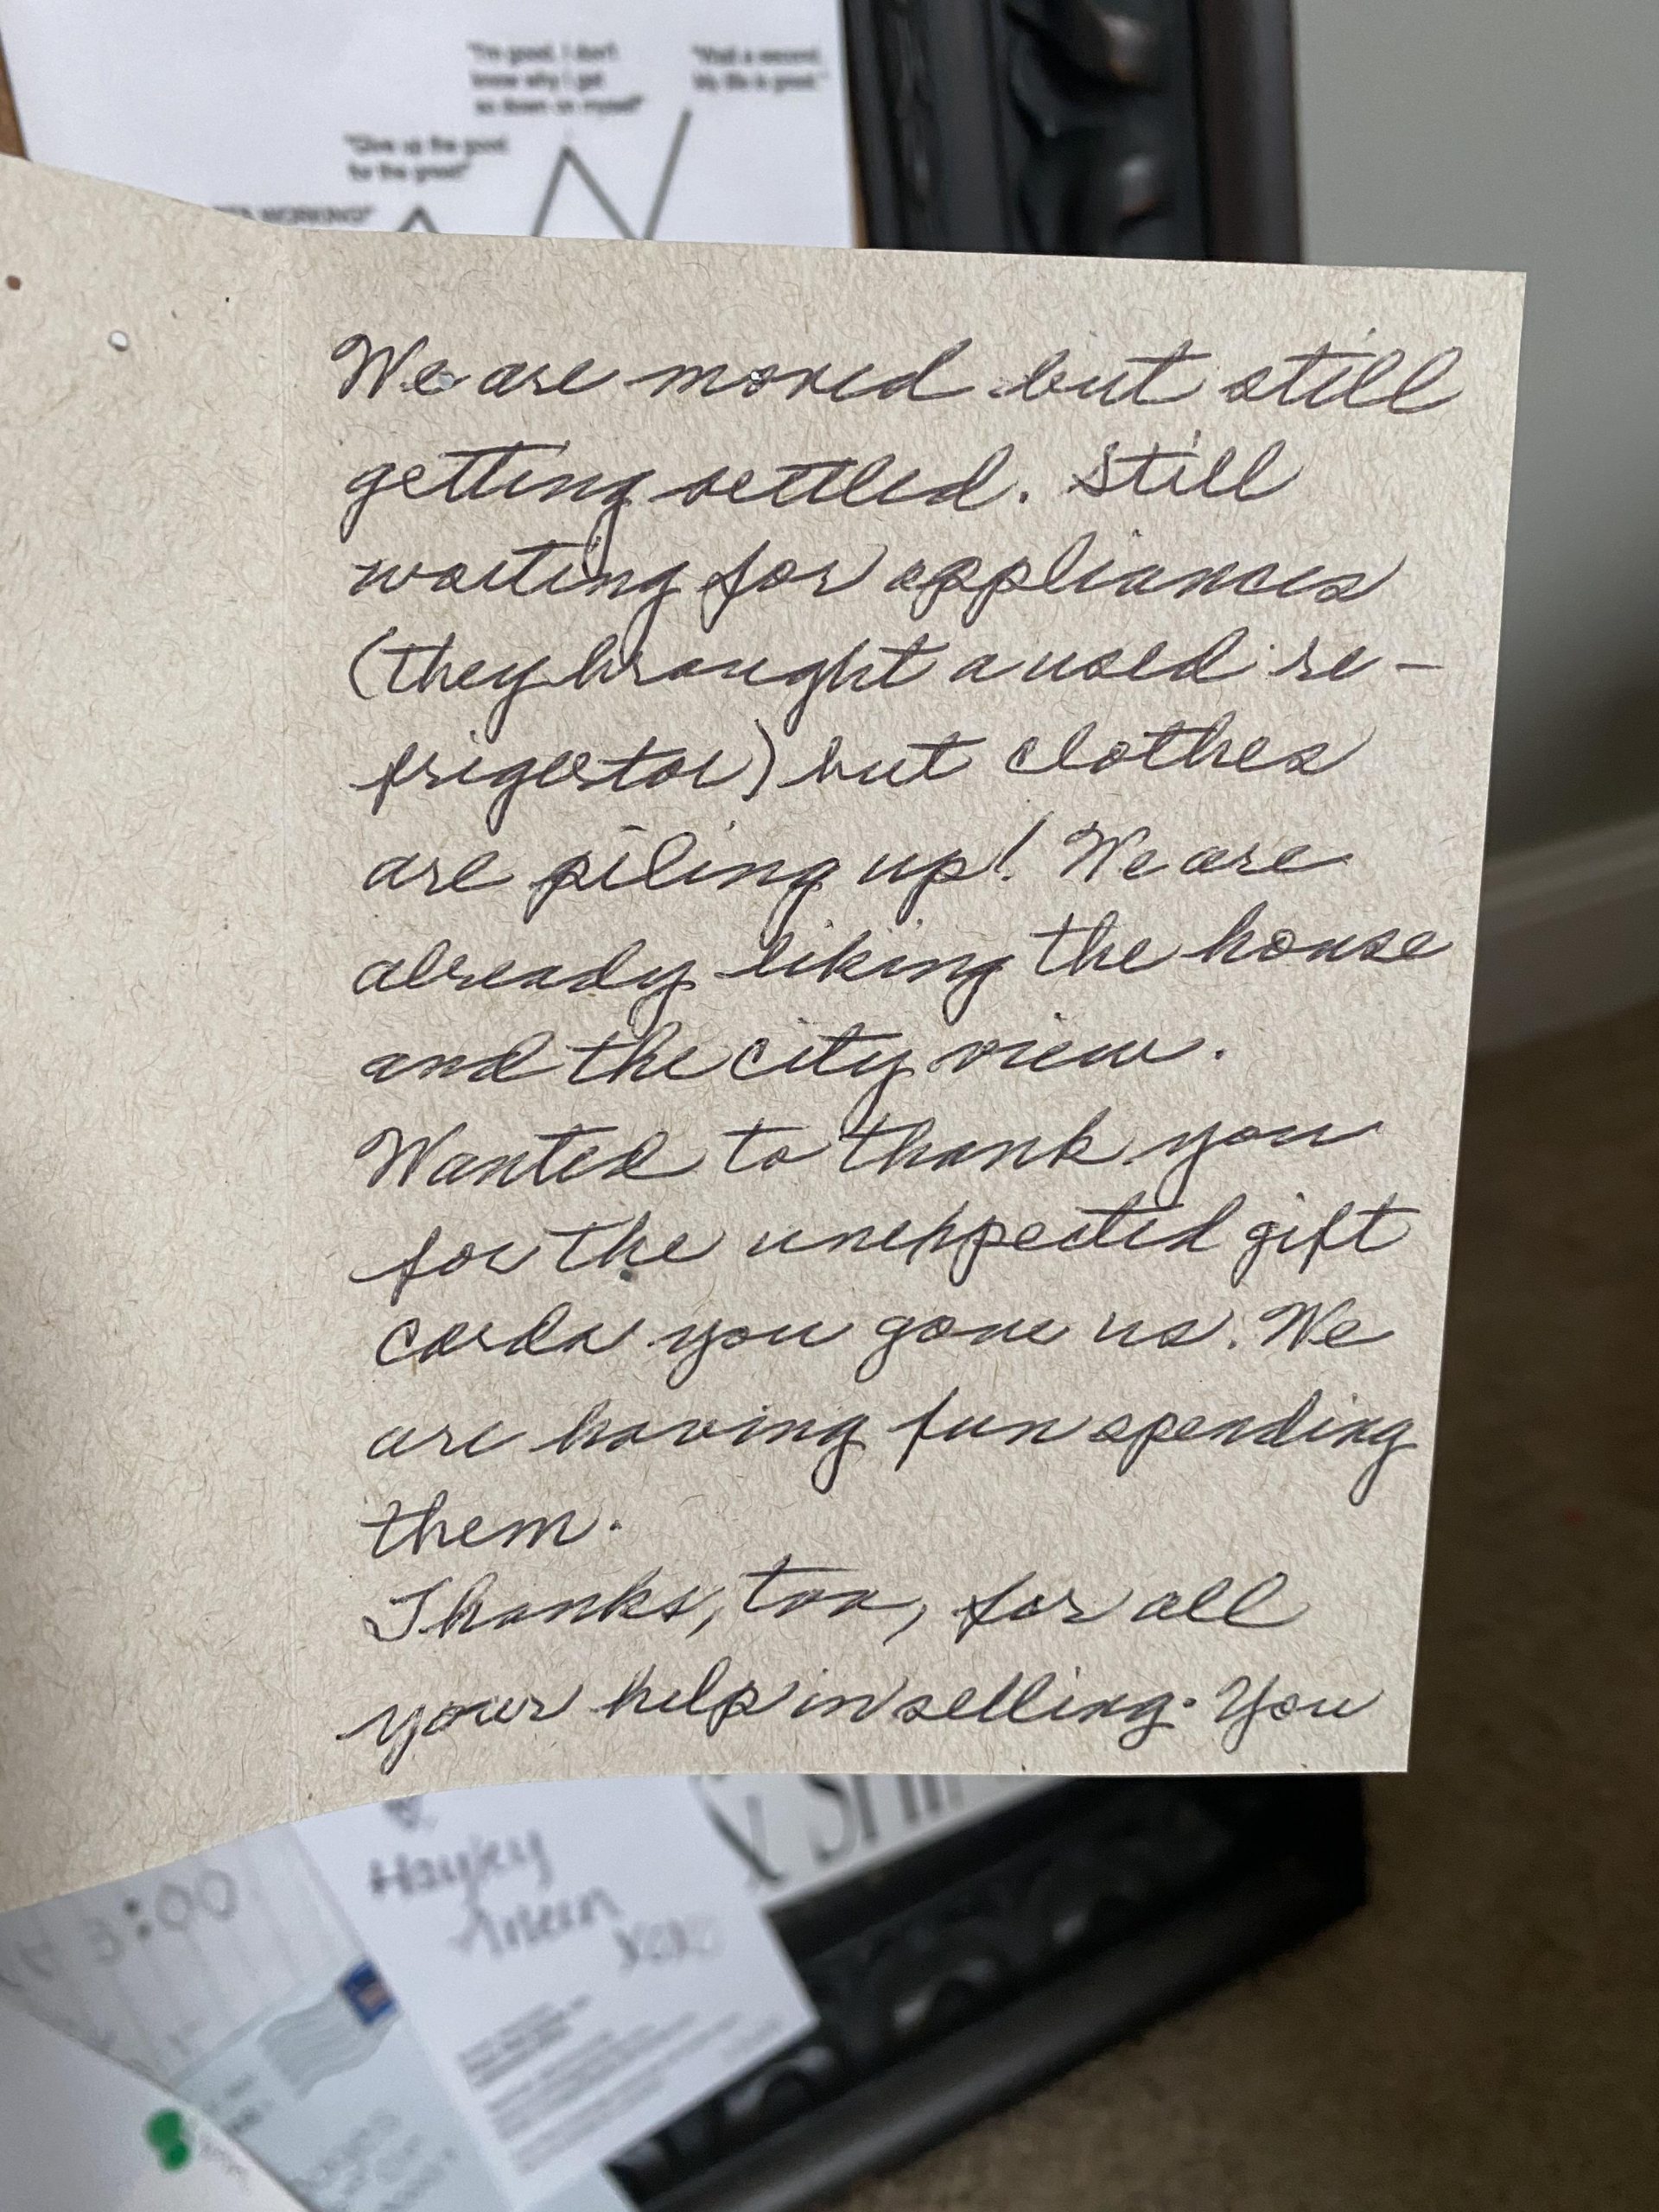 "I'm good, I don't
know why I get
so down on myself"
"Wait a second.
My life is good."
"Give up the good
for the great"
WORKING!"
We are moved but still
getting settled. Still
waiting for appliances
(they brought a used re-
frigerator) but clothes
are piling up! We are
already liking the house
and the city view.
Wanted to thank you
for the unexpected gift
cards you gave us. We
are having fun spending
them.
Thanks, too, for all
your help in selling. You
Hayley
:00